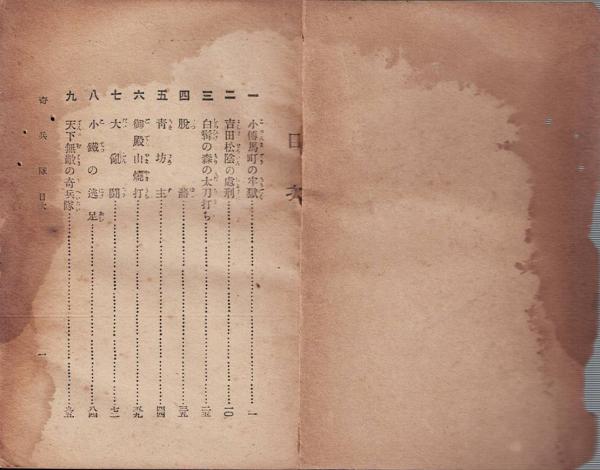 目次
一 小傳馬町の牢獄 一
二 吉田松陰の處刑 一〇
三 白鴉の森の太刀打ち 二五
四 脫藩 三五
五 靑坊主 四四
六 御殿山燒打 五九
七 大亂鬪 七一
八 小鐵の逸足 八四
九 天下無敵の奇兵隊 九五
奇兵隊 目次 一